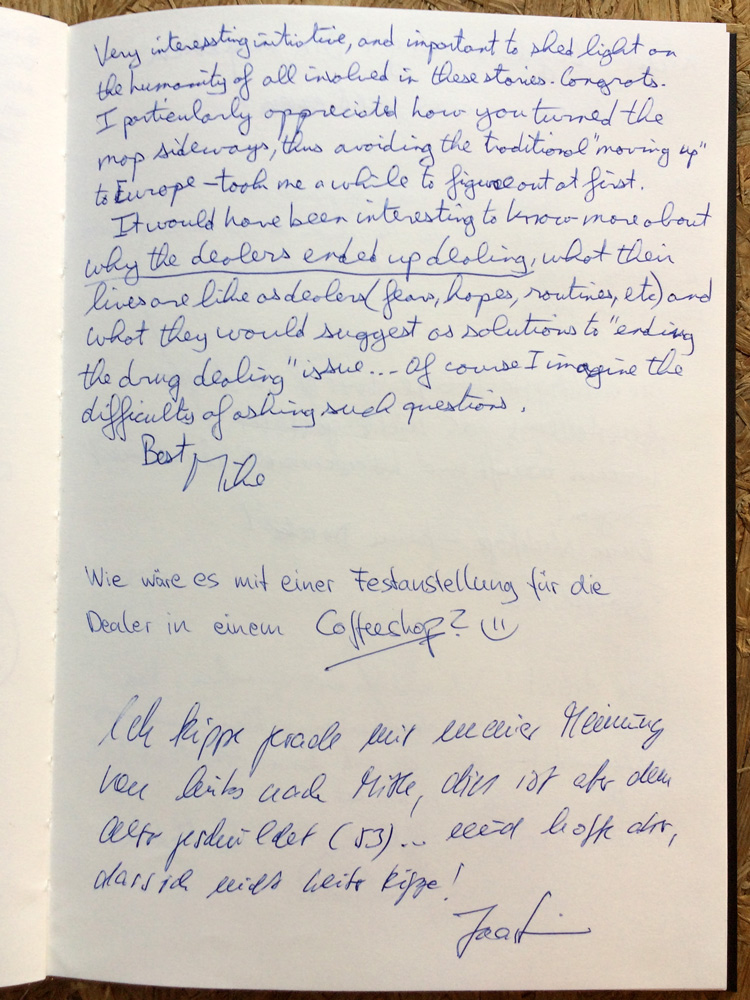 Very interessting initiative, and important to shed light on
the humanity of all involved in these stories. Congrats.
I particularly appreciated how you turned the
map sideways, thus avoiding the traditional "moving up"
to Europe – took me a while to figure out at first.
It would have been interesting to know more about
why the dealers ended up dealing, what their
lives are like as dealers (fears, hopes, routines, etc) and
what they would suggest as solutions to "ending
the drug dealing" issue... Of course I imagine the
difficulty of asking such questions.
Best,
Mike
Wie wäre es mit einer Festanstellung für die
Dealer in einem Coffeeshop? :)
Ich kippe gerade mit meiner Meinung
von links nach Mitte, dies ist aber dem
Alter geschuldet (53)... und hoffe
dass ich nicht weiter kippe!